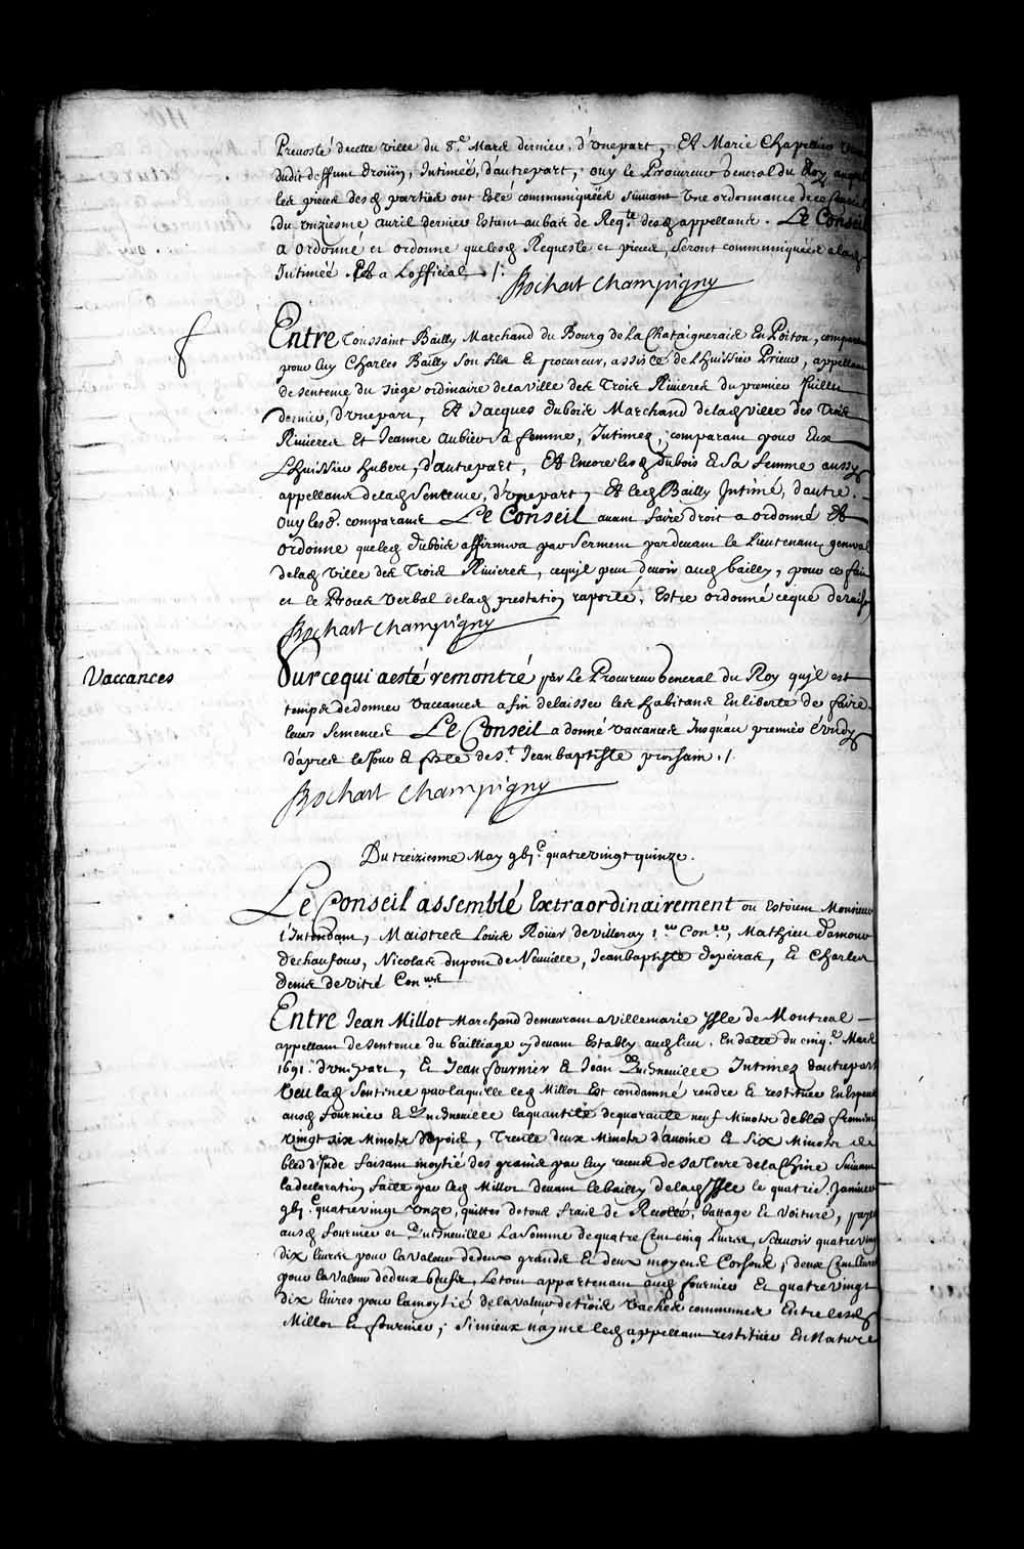 Prevosté de cette ville du 8.e Mars dernier, d'une part, Et Marie Chapellier veuve
dudit deffunt Droüin, Intimée, d'autre part, ouy le Procureur General du Roy auquel
les pieces desd parties ont esté communiquées suivant une ordonnance de ce Conseil
du unziesme avril dernier Estant au bas de Reqte desd appellans. Le Conseil
a ordonné et ordonne que lesd Requeste et pieces, seront communiquées a lad
Intimée Et a Lofficial ./.
Bochart Champigny
Entre Toussaint Bailly Marchand du Bourg de la Chataigneraie En Poitou, comparant
pour luy Charles Bailly son fils & procureur, assisté de l'huissier Prieur, appellant
de sentence du siege ordinaire de la ville des Trois Rivieres du premier Juillet
dernier, d'une part, Et Jacques dubois Marchand de lad ville des Trois
Rivieres Et Jeanne Aubier sa femme, Intimez, comparant pour Eux
L'huissier hubert, d'autre part, Et Encore lesd dubois & sa femme aussy
appellans de lad Sentence, d'une part, Et led Bailly Intimé, d'autre.
Ouy lesd. comparans Le Conseil avant faire droit a ordonné Et
Ordonne que led dubois affirmera par serment pardevant le Lieutenant general
de lad Ville des Trois Rivieres, ce qu'il peut devoir aud bailly, pour ce fait
et le Procés verbal de lad prestation raporté, Estre ordonné ce que de raison
Bochart Champigny
Vaccances
Sur ce qui a esté remontré par Le Procureur General du Roy qu'il est
temps de donner vaccances afin de laisser les habitans En liberté de faire
leurs semences Le Conseil a donné vaccances Jusqu'au premier lundy
d'aprés le Jour & feste de St. Jean baptiste prochain ./.
Bochart Champigny
Du treiziesme May gbi.c quatrevingt quinze.
Le Conseil assemblé Extraordinairement ou Estoient Monsieur
l'Intendant, Maistres Louis Roüer de Villeray 1.er Con.er, Mathieu damours
deschaufour, Nicolas dupont de Neuville, Jean baptiste depeiras, & Charles
Denis de Vitré Con.ers
Entre Jean Millot Marchand demeurant a Villemarie Isle de Montreal
appellant de sentence du bailliage cy devant Estably aud lieu, En datte du cinq.e Mars
1691. d'une part, & Jean fournier & Jean Quesneville Intimez d'autre part
Veu lad Sentence par laquelle led Millot Est condamné rendre & restituer En Espece
ausd fournier & Quesneville la quantité de quarante neuf Minots de bled froment
vingt six Minots de pois, Trente deux Minots d'avoine & Six Minots de
bled d'Inde faisant moytié des grains par luy receus de sa Terre de la Chine suivant
la declaration faite par led Millot devant le bailly de lad Isle le quatrie. Janvier
gbi.c quatrevingt unze, quittes de tous frais de Recolte, battage & Voiture, payer
ausd fournier et Quesneville La somme de quatre Cent cinq livres, scavoir quatrevingt
dix livres pour la valeur de deux grands & deux moyens Cochons, deux Cent livres
pour la valeur de deux boeufs, Le tout appartenant aud fournier Et quatrevingt
dix livres pour la moytié de la valeur de trois vaches communes Entre lesd
Millot Et fournier, si mieux n'ayme led appellant restituer En Nature